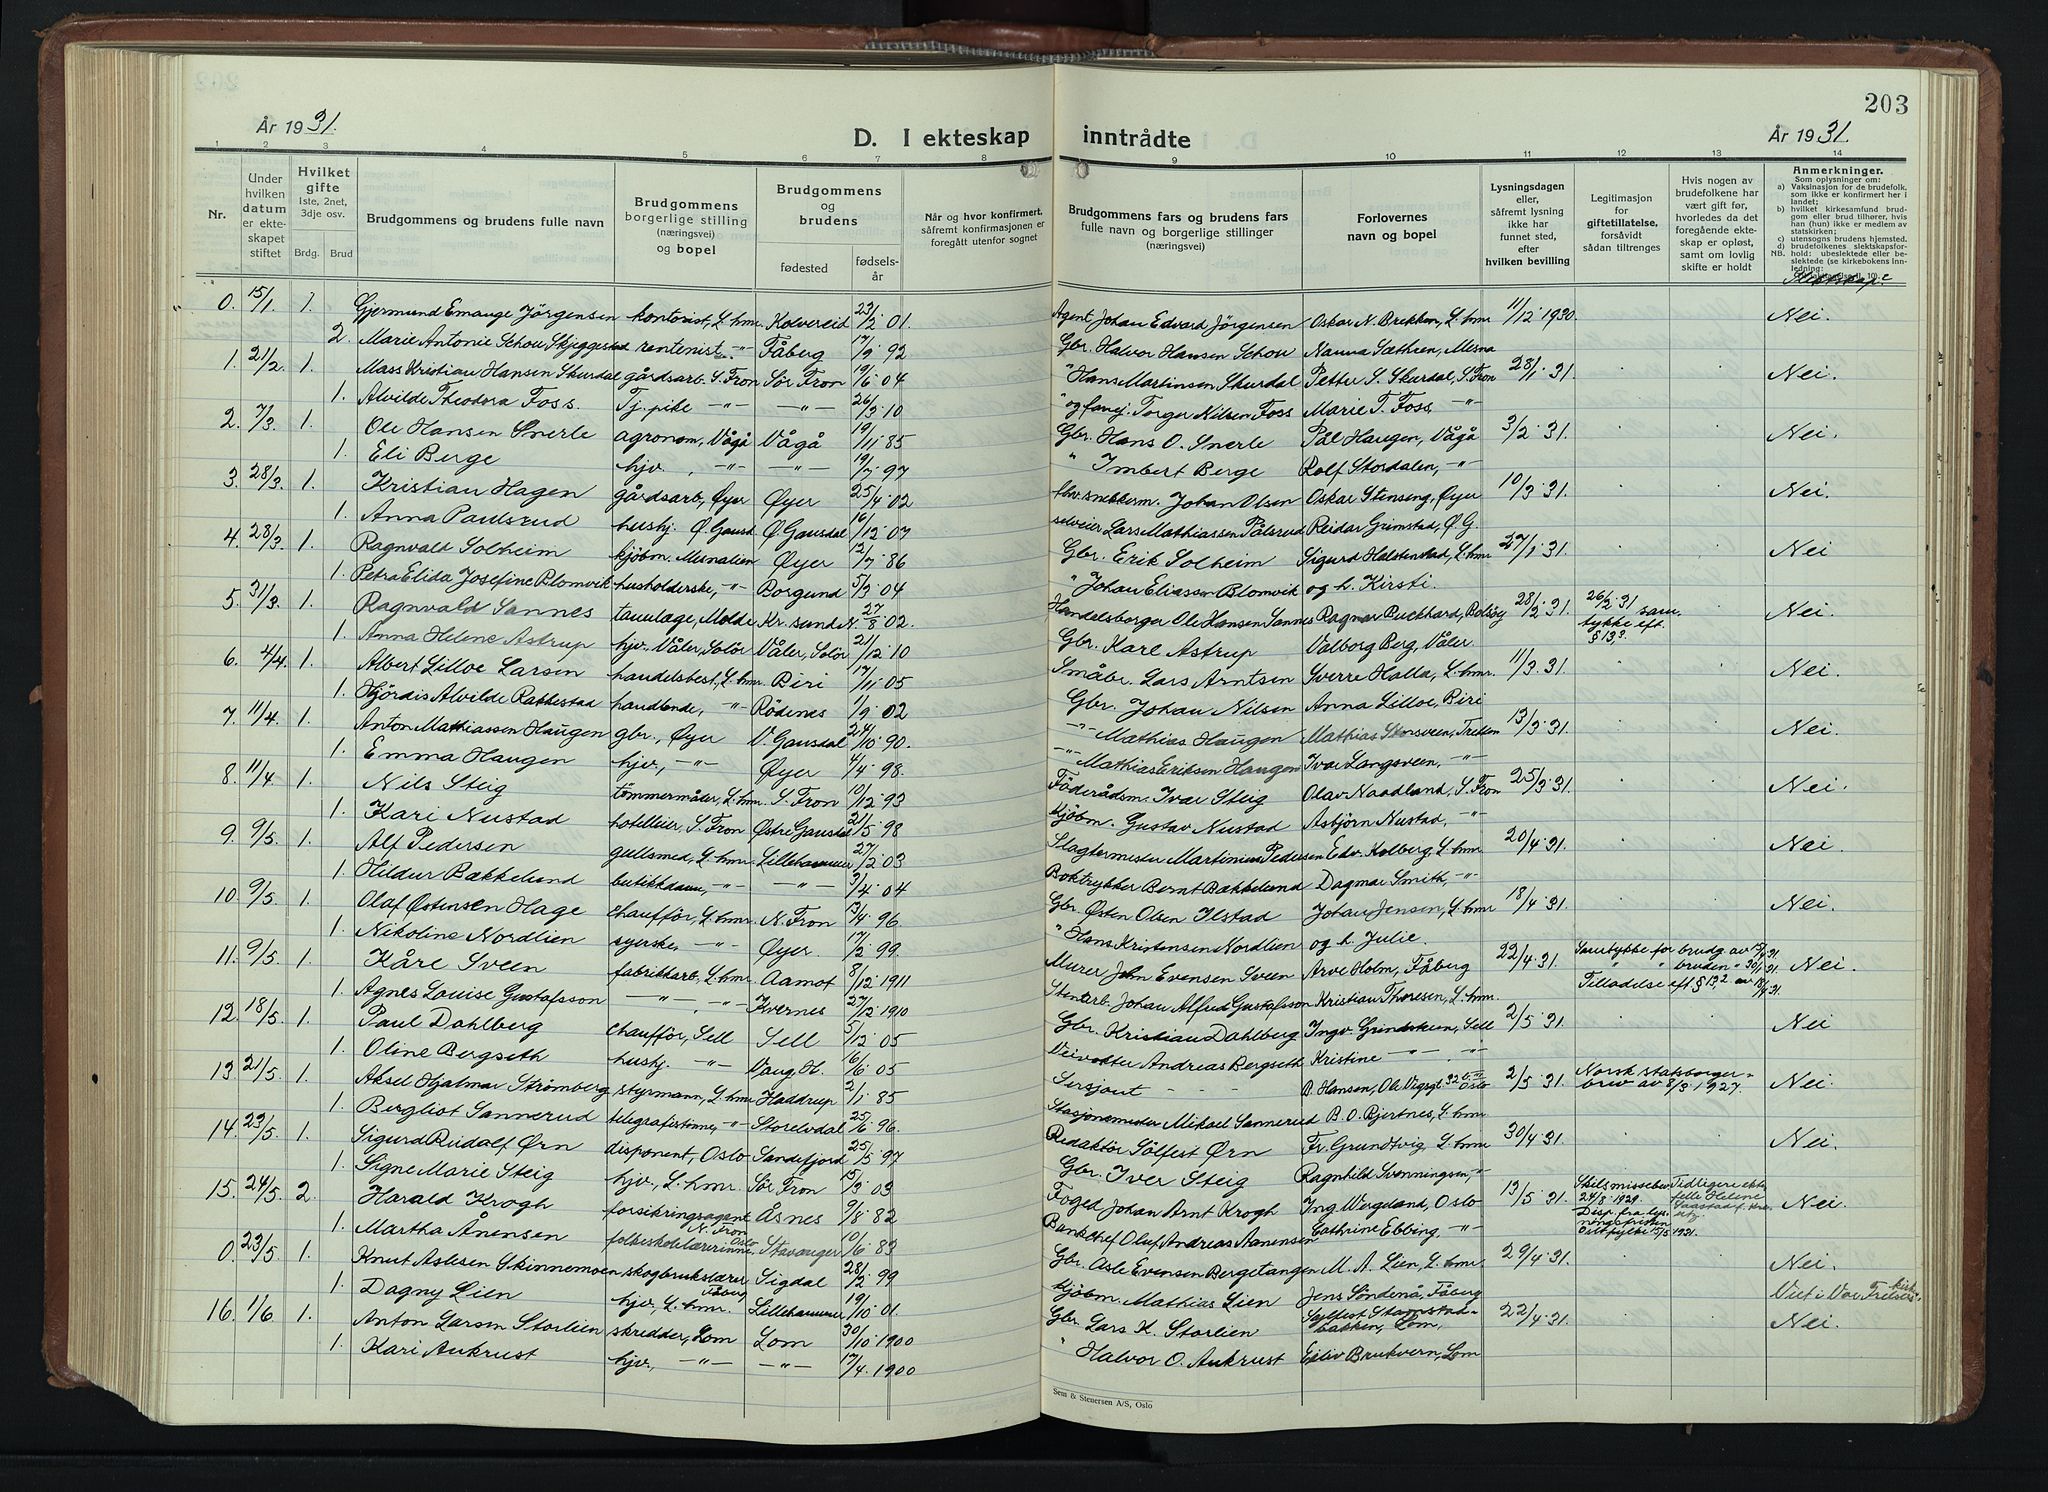 203
År 1931.
D. I ekteskap inntrådte
År 1931.
1 2 3 4 5 6 7 8 9 10 11 12 13 14
Nr.
Under hvilken datum er ekteskapet stiftet
Hvilket gifte 1ste, 2net, 3dje osv.
Brdg. Brud
Brudgommens og brudens fulle navn
Brudgommens borgerlige stilling (næringsvei) og bopel
Brudgommens og brudens
fødested
fødselsår
Når og hvor konfirmert, såfremt konfirmasjonen er foregått utenfor sognet
Brudgommens fars og brudens fars fulle navn og borgerlige stillinger (næringsvei)
Forlovernes navn og bopel
Lysningsdagen eller, såfremt lysning ikke har funnet sted, efter hvilken bevilling
Legitimasjon for giftetillatelse, forsåvidt sådan tiltrenges
Hvis nogen av brudefolkene har vært gift før, hvorledes da det foregående ekteskap er opløst, samt om lovlig skifte er holdt
Anmerkninger.
Som oplysninger om:
a) Vaksinasjon for de brudefolk, som ikke er konfirmert her i landet;
b) hvilket kirkesamfund brudgom eller brud tilhører, hvis han (hun) ikke er medlem av statskirken;
c) utensogns brudens hjemsted.
d) brudefolkenes slektskapsforhold: ubeslektede eller beslektede (se kirkebokens innledning:
0. 15/1 1. Gjermund Emauge Jörgensen kontorist, L.hmr. Kolvereid 23/2 01. Agent Johan Edvard Jörgensen Oskar N. Brekken, L.hmr 11/12 1930. Nei.
2. Marie Antonie Schou Skjeggestad rentenist " Fåberg 17/9 92 Gbr. Halvor Hansen Schou Nanna Sæthren, Mesna
1. 21/2 1. Mass Kristian Hansen Skurdal gårdsarb. S. Fron Sör Fron 19/6 04 " Hans Martinsen Skurdal Petter S. Skurdal, S. Fron 28/1 31. Nei.
1. Alvilde Theodora Foss. Tj. pike -"- -"- 26/3 10 " og fanej. Torger Nilsen Foss Marie T. Foss, -"-
2. 7/3 1. Ole Hansen Snerle agronom, Vågå Vågå 19/11 85 Gbr. Hans O. Snerle Pål Haugen, Vågå 3/2 31. Nei.
1. Eli Berge hjv. -"- -"- 19/7 97 " Imbert Berge Rolf Stordalen, -"-
3. 28/3 1. Kristian Hagen gårdsarb, Øyer Øyer 25/4 02 fhv. snekkerm. Johan Olsen Oskar Stenseng, Øyer 10/3 31. Nei.
1. Anna Paulsrud hushj. Ø. Gausd Ø. Gausdal 16/12 07 selveier Lars Mathiassen Pålsrud Reidar Grimstad, Ø. G.
4. 28/3 1. Ragnvald Solheim kjöbm. Mesnalien Øyer 12/7 86 Gbr. Erik Solheim Sigurd Halstenstad, L.hmr 27/1 31. Nei
1. Petra Elida Josefine Blomvik husholderske, -"- Borgund 5/3 04 " Johan Eliassen Blomvik og h. Kirsti.
5. 31/3 1. Ragnvald Sannes tannlæge, Molde Kr. sund N. 27/8 02. Handelsborger Ole Hansen Sannes Ragnar Buckhard, Bolsöy 28/2 31. 26/2 31 sam tykke eft. § 13,2 Nei.
1. Anna Helene Astrup hjv. Våler, Solör Våler, Solör 21/12 10 Gbr. Karl Astrup Valborg Berg, Våler.
6. 4/4 1. Albert Lilloe Larsen handelsbest, L.hmr. Biri 17/11 05 Småbr. Lars Arntsen Sverre Halla, L.hmr. 11/3 31. Nei.
1. Hjördis Alvilde Rakkestad handlende, -"- Rödenes 1/9 02 Gbr. Johan Nilsen Anna Lilloe, Biri
7. 11/4 1. Anton Mathiassen Haugen gbr., Øyer V. Gausdal 24/10 90. -"- Mathias Haugen Mathias Storsveen, Tretten 13/3 31. Nei.
1. Emma Haugen hjv., -"- Øyer 4/4 98. -"- Mathias Eriksen Haugen Ivar Langsveen, -"-
8. 11/4 1. Nils Steig tömmermåler, L.hmr. S. Fron 10/12 93 Föderådsm. Ivar Steig Olav Naadland, S. Fron 25/3 31. Nei.
1. Kari Nustad hotelleier, S. Fron Østre Gausdal 21/5 98 Kjöbm. Gustav Nustad Asbjörn Nustad, -"-
9. 9/5 1. Alf Pedersen gullsmed, L.hmr. Lillehammer 27/12 03 Slagtermester Martinius Pedersen Edv. Kolberg, L.hmr 20/4 31. Nei.
1. Hildur Bækkelund butikkdame, -"- -"- 3/4 04 Boktrykker Bernt Bækkelund Dagmar Smith, -"-
10. 9/5 1. Olaf Østensen Hage chaufför, L.hmr. N. Fron 13/4 96. Gbr. Østen Olsen Ilstad Johan Jensen, L.hmr 18/4 31. Nei.
1. Nikoline Nordlien syerske, -"- Øyer 17/2 99. " Hans Kristensen Nordlien og h. Julie.
11. 9/5 1. Kåre Sveen fabrikkarb, L.hmr. Aamot 8/12 1911 Murer John Evensen Sveen Arve Holm, Fåberg 22/4 31. Samtykke for brudg. av 15/4 31. " " bruden " 30/1 31. Tilladelse eft § 13,2 av 18/4 31. Nei.
1. Agnes Louise Gustafsson -"- -"- Kvernes 27/12 1910 Stenarb. Johan Alfred Gustafsson Kristian Thoresen, L.hmr.
12. 18/5 1. Paul Dahlberg chaufför, Sell Sell 5/12 05 Gbr. Kristian Dahlberg Ingv. Grindstuen, Sell 2/5 31. Nei
1. Oline Bergseth hushj. -"- Vang H. 6/6 05 Veivokter Andreas Bergseth Kristine -"- -"-
13. 21/5 1. Aksel Hjalmar Strömberg styrmann, L.hmr Haddrup 2/1 85 Sersjant - - - B. Hansen, Ole Vigsgt. 32 Oslo 2/5 31. Norsk statsborgerbrev av 8/3 1927. Nei.
1. Bergliot Sannerud telegrafistinne, -"- Storelvdal 25/6 96. Stasjonsmester Mikael Sannerud B. O. Bjertnes, L.hmr
14. 23/5 1. Sigurd Rudolf Ørn disponent, Oslo Sandefjord 25/5 97 Redaktör Sölfest Ørn Fr. Grundtvig, L.hmr 30/4 31. Nei.
1. Signe Marie Steig hjv., L.hmr. Sör Fron 15/3 03 Gbr. Iver Steig Ragnhild Svenningsen, -"-
15. 24/5 2. Harald Krogh forsikringsagent N. Fron Åsnes 9/8 82 Foged Johan Arnt Krogh Ing. Wergeland, Oslo 13/5 31. Skilsmissebev 24/8 1929. Disp. fra lysningsfristen Oslofylke 15/5 1931. Tidligere ektefelle Helene Nei.
1. Martha Ånensen folkeskolelærerinne Oslo Stavanger 10/6 83 Bankchef Oluf Andreas Aanensen Cathrine Ebbing, -"-
0. 23/5 1. Knut Aslesen Skinnemoen skogbrukslærer Fåberg Sigdal 28/2 99 Gbr. Asle Evensen Bergetangen M. A. Lien, L.hmr. 29/4 31. Nei.
1. Dagny Lien hjv, L.hmr. Lillehammer 19/10 01. Kjöbm. Mathias Lien Jens Söndenå, Fåberg Viet i Vor Frelsers kirke.
16. 1/6 1. Anton Larsen Storlien skredder, Lom Lom 30/10 1900 Gbr. Lars K. Storlien Stamstadbakken, Lom, 22/4 31. Nei.
1. Kari Aukrust hjv, -"- -"- 17/4 1900 " Halvor O. Aukrust Eiliv Brukvern, Lom
Sem & Stenersen A/S, Oslo